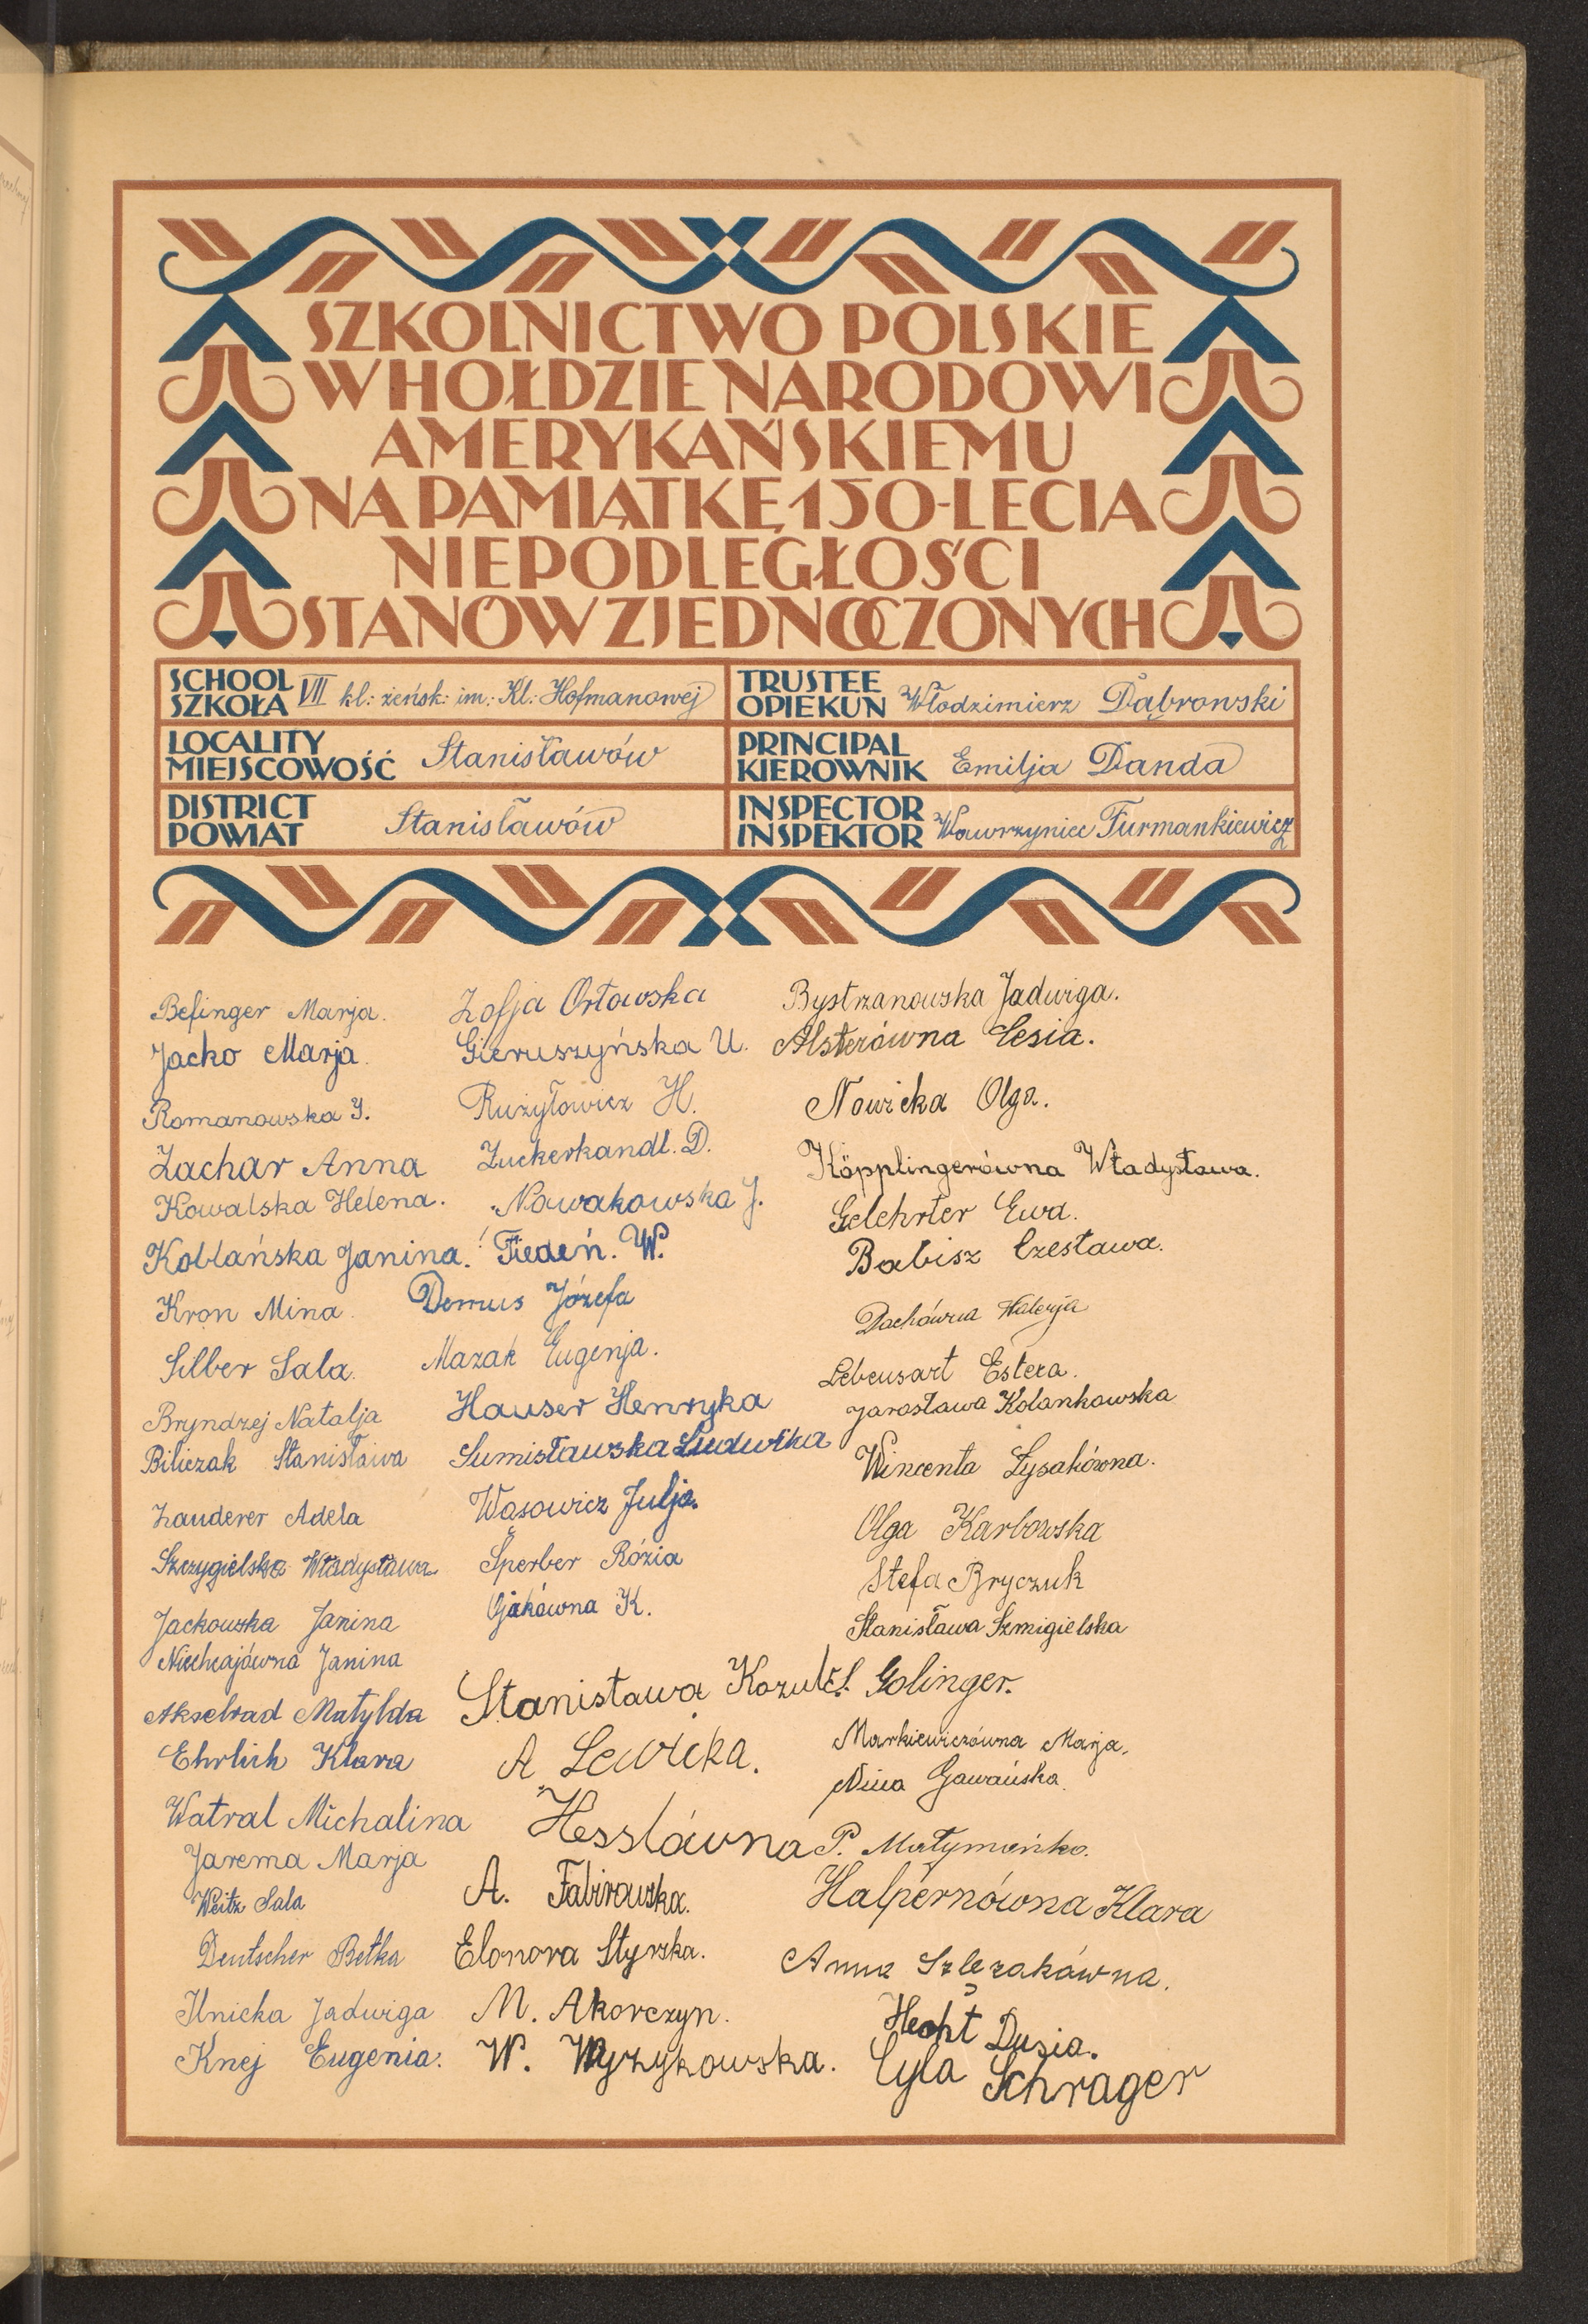 SZKOLNICTWO POLSKIE
W HOŁDZIE NARODOWI
AMERYKAŃSKIEMU
NA PAMIĄTKĘ 150-LECIA
NIEPODLEGŁOŚCI
STANÓW ZJEDNOCZONYCH
SCHOOL
SZKOŁA VII kl: żeńsk: im: Kl: Hofmanowej
TRUSTEE
OPIEKUN Włodzimierz Dąbrowski
LOCALITY
MIEJSCOWOŚĆ Stanisławów
PRINCIPAL
KIEROWNIK Emilja Danda
DISTRICT
POWIAT Stanisławów
INSPECTOR
INSPEKTOR Wawrzyniec Furmankiewicz
Befinger Marja.
Jacko Marja.
Romanowska J.
Zachar Anna
Kowalska Helena.
Koblańska Janina.
Kron Mina
Silber Sala.
Bryndzej Natalja
Biliczak Stanisława
Zauderer Adela
Szczygielska Władysława
Jackowska Janina
Niechcajówna Janina
Akselrad Matylda
Ehrlich Klara
Watral Michalina
Jarema Marja
Weitz Sala
Deutscher Betka
Ilnicka Jadwiga
Knej Eugenia.
Zofja Orłowska
Gieruszyńska U.
Rużyłowicz H.
Zuckerkandl. D.
Nowakowska J.
Fiedeń. W.
Demus Józefa
Mazak Eugenja.
Hauser Henryka
Sumisławska Ludwika
Wąsowicz Julja.
Sperber Rózia
Ojakówna K.
Stanisława Kozub
A. Lewicka.
Hesslówna
A. Fabirowska.
Elonora Styrska.
M. Akorczyn.
W. Wyżykowska.
Bystrzanowska Jadwiga.
Alsterówna Lesia.
Nowicka Olga.
Köpplingerówna Władysława.
Gelehrter Ewa.
Babisz Czesława.
Dachówna Walerja
Lebensart Estera.
Jarosława Kolankowska
Wincenta Łysakówna.
Olga Karbowska
Stefa Bryczuk
Stanisława Szmigielska
S. Golinger.
Markiewiczówna Marja.
Nina Gawańska.
P. Matymońko.
Halpernówna Klara
Anna Szlęzakówna.
Hecht Dusia.
Cyla Schrager